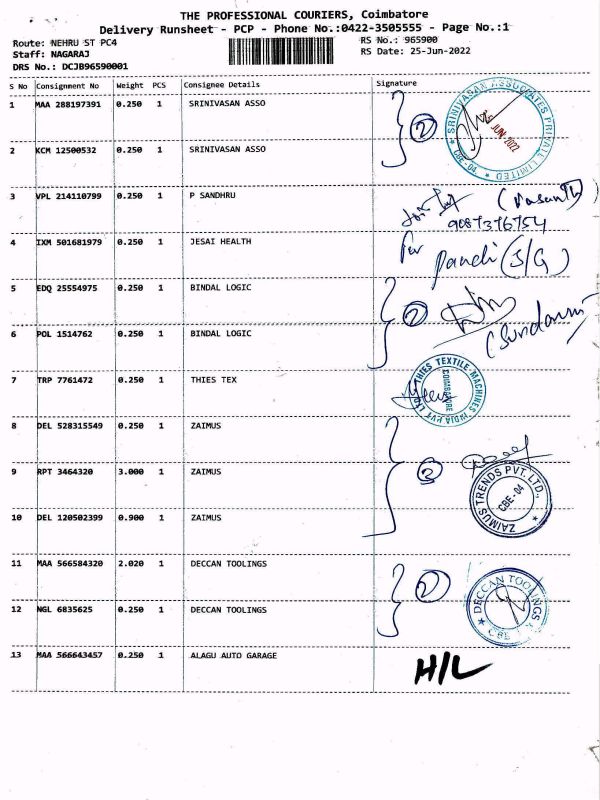 THE PROFESSIONAL COURIERS, Coimbatore
Delivery Runsheet - PCP - Phone No.:0422-3505555 - Page No.:1
Route: NEHRU ST PC4
RS No.: 965900
Staff: NAGARAJ
RS Date: 25-Jun-2022
DRS No.: DCJB96590001
S No Consignment No Weight PCS Consignee Details Signature
1 MAA 288197391 0.250 1 SRINIVASAN ASSO
2 KCM 12500532 0.250 1 SRINIVASAN ASSO
2
SRINIVASAN ASSOCIATES PRIVATE LIMITED
CBE-04
25 JUN 2022
3 VPL 214110799 0.250 1 P SANDHRU
(Vasanth)
9087376754
4 IXM 501681979 0.250 1 JESAI HEALTH
Pandi (S/G)
5 EDQ 25554975 0.250 1 BINDAL LOGIC
6 POL 1514762 0.250 1 BINDAL LOGIC
2
7 TRP 7761472 0.250 1 THIES TEX
THIES TEXTILE MACHINES INDIA PVT LTD
COIMBATORE
8 DEL 528315549 0.250 1 ZAIMUS
9 RPT 3464320 3.000 1 ZAIMUS
10 DEL 120502399 0.900 1 ZAIMUS
3
ZAIMUS TRENDS PVT. LTD.,
CBE-04
11 MAA 566584320 2.020 1 DECCAN TOOLINGS
12 NGL 6835625 0.250 1 DECCAN TOOLINGS
2
DECCAN TOOLINGS
13 MAA 566643457 0.250 1 ALAGU AUTO GARAGE
H/L